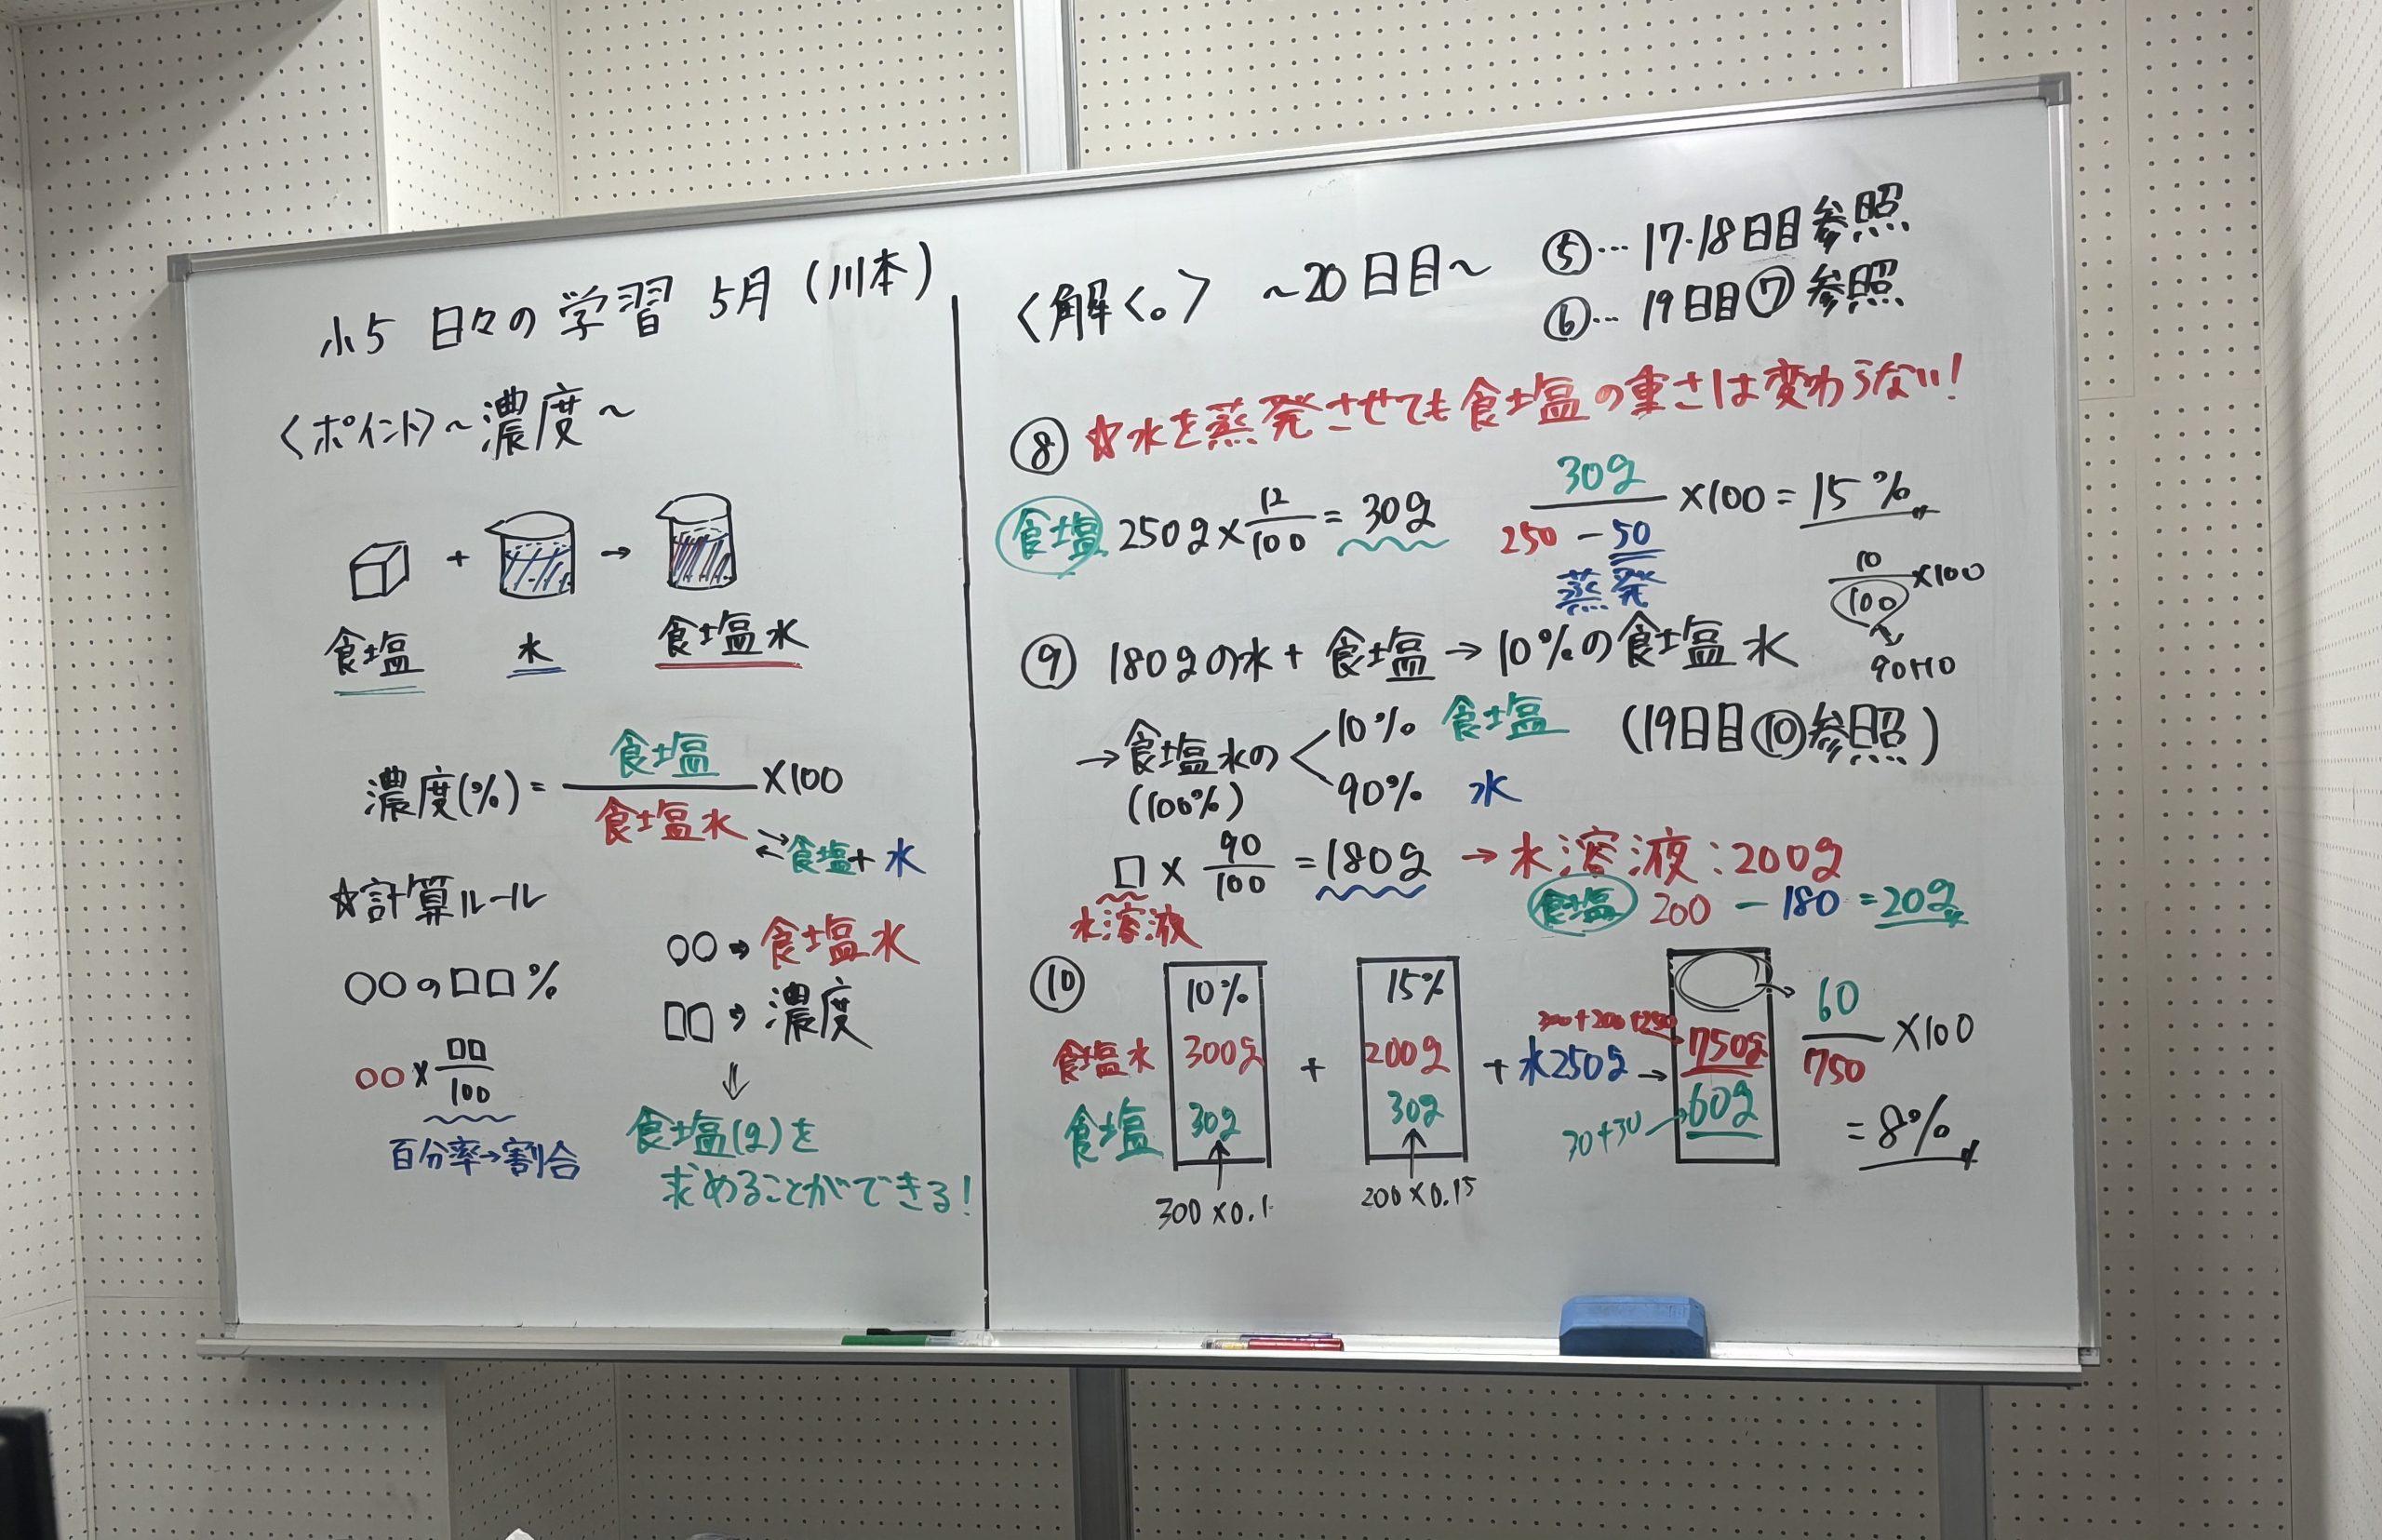 小5 日々の学習 5月 (川本)
〈ポイント〉~濃度~
+ →
食塩 水 食塩水
濃度(%) = 食塩/食塩水 ×100
食塩+水
☆計算ルール
○○の□□%
○○×□□/100
百分率→割合
○○→食塩水
□□→濃度
食塩(g)を
求めることができる!
〈解く。〉 ~20日目~
⑤… 17・18日目参照
⑥… 19日目⑦参照
⑧ ☆水を蒸発させても食塩の重さは変わらない!
食塩 250g×12/100=30g
30g/250-50 ×100=15%
蒸発
10/100×100
90+10
⑨ 180gの水+食塩→10%の食塩水
→食塩水の 10% 食塩 (19日目⑩参照)
(100%) 90% 水
□×90/100=180g →水溶液:200g
水溶液
食塩 200-180=20g
⑩ 10% 15%
食塩水 300g + 200g + 水250g → 750g
300+200+250
食塩 30g 30g 60g
30+30
300×0.1 200×0.15
60/750 ×100
=8%